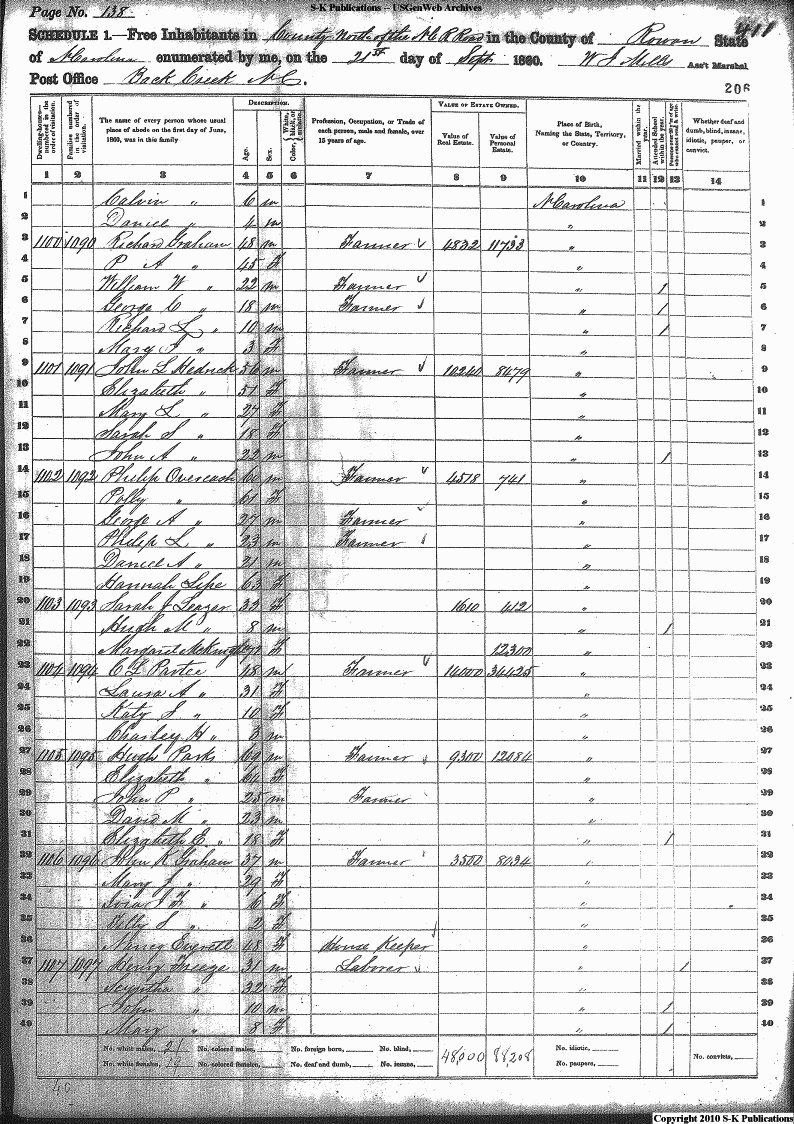 S-K Publications -- USGenWeb Archives
Page No. 138
SCHEDULE 1.—Free Inhabitants in County North of the N C R Road in the County of Rowan State
of N Carolina enumerated by me, on the 21st day of Sept 1860. W J Mills Ass't Marshal
Post Office Back Creek N C.
206
Dwelling-houses—numbered in the order of visitation. Families numbered in the order of visitation. The name of every person whose usual place of abode on the first day of June, 1860, was in this family DESCRIPTION. Age. Sex. Color, White, black, or mulatto. Profession, Occupation, or Trade of each person, male and female, over 15 years of age. VALUE OF ESTATE OWNED. Value of Real Estate. Value of Personal Estate. Place of Birth, Naming the State, Territory, or Country. Married within the year. Attended School within the year. Whether deaf and dumb, blind, insane, idiotic, pauper, or convict.
1 2 3 4 5 6 7 8 9 10 11 12 13 14
1 Calvin " 6 m N Carolina 1
2 Daniel " 4 m " 2
3 1100 1090 Richard Graham 48 m Farmer 4832 11733 " 3
4 P A " 45 F " 4
5 William W " 22 m Farmer " / 5
6 George C " 18 m Farmer " / 6
7 Richard L " 10 m " / 7
8 Mary J " 3 F " 8
9 1101 1091 John L Hedrick 56 m Farmer 10240 8479 " 9
10 Elizabeth " 51 F " 10
11 Mary L " 27 F " 11
12 Sarah S " 18 F " 12
13 John A " 22 m " / 13
14 1102 1092 Philip Overcash 60 m Farmer 4518 741 " 14
15 Polly " 61 F " 15
16 George A " 27 m Farmer " 16
17 Philip L " 23 m Farmer " 17
18 Daniel A " 21 m " 18
19 Hannah Lipe 63 F " 19
20 1103 1093 Sarah J Leazer 32 F 1610 412 " 20
21 Hugh M " 8 m " / 21
22 Margaret F 12300 " 22
23 1104 1094 C L Partee 48 m Farmer 14000 34425 " 23
24 Laura A " 31 F " 24
25 Katy S " 10 F " 25
26 Charley H " 3 m " 26
27 1105 1095 Hugh Parks 69 m Farmer 9300 12084 " 27
28 Elizabeth " 62 F " 28
29 John P " 25 m Farmer " 29
30 David M " 23 m " 30
31 Elizabeth E " 18 F " / 31
32 1106 1096 John K Graham 37 m Farmer 3500 8034 " 32
33 Mary J " 29 F " 33
34 F " 6 F " 34
35 S " 2 F " 35
36 Nancy Everett 48 F House Keeper " 36
37 1107 1097 Henry Freeze 31 m Laborer " / 37
38 " 32 F " 38
39 John " 10 m " / 39
40 Mary " 8 F " / 40
No. white males, 21 No. colored males, No. foreign born, No. blind, 48,000 88,208 No. idiotic,
No. white females, 19 No. colored females, No. deaf and dumb, No. insane, No. paupers, No. convicts,
40
Copyright 2010 S-K Publications